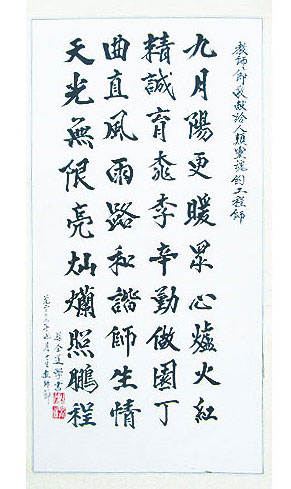 教師節我獻給人類靈魂的工程師
九月陽更暖眾心爐火紅
精誠育桃李辛勤做園丁
曲直風雨路和諧師生情
天光無限亮灿爛照鵬程